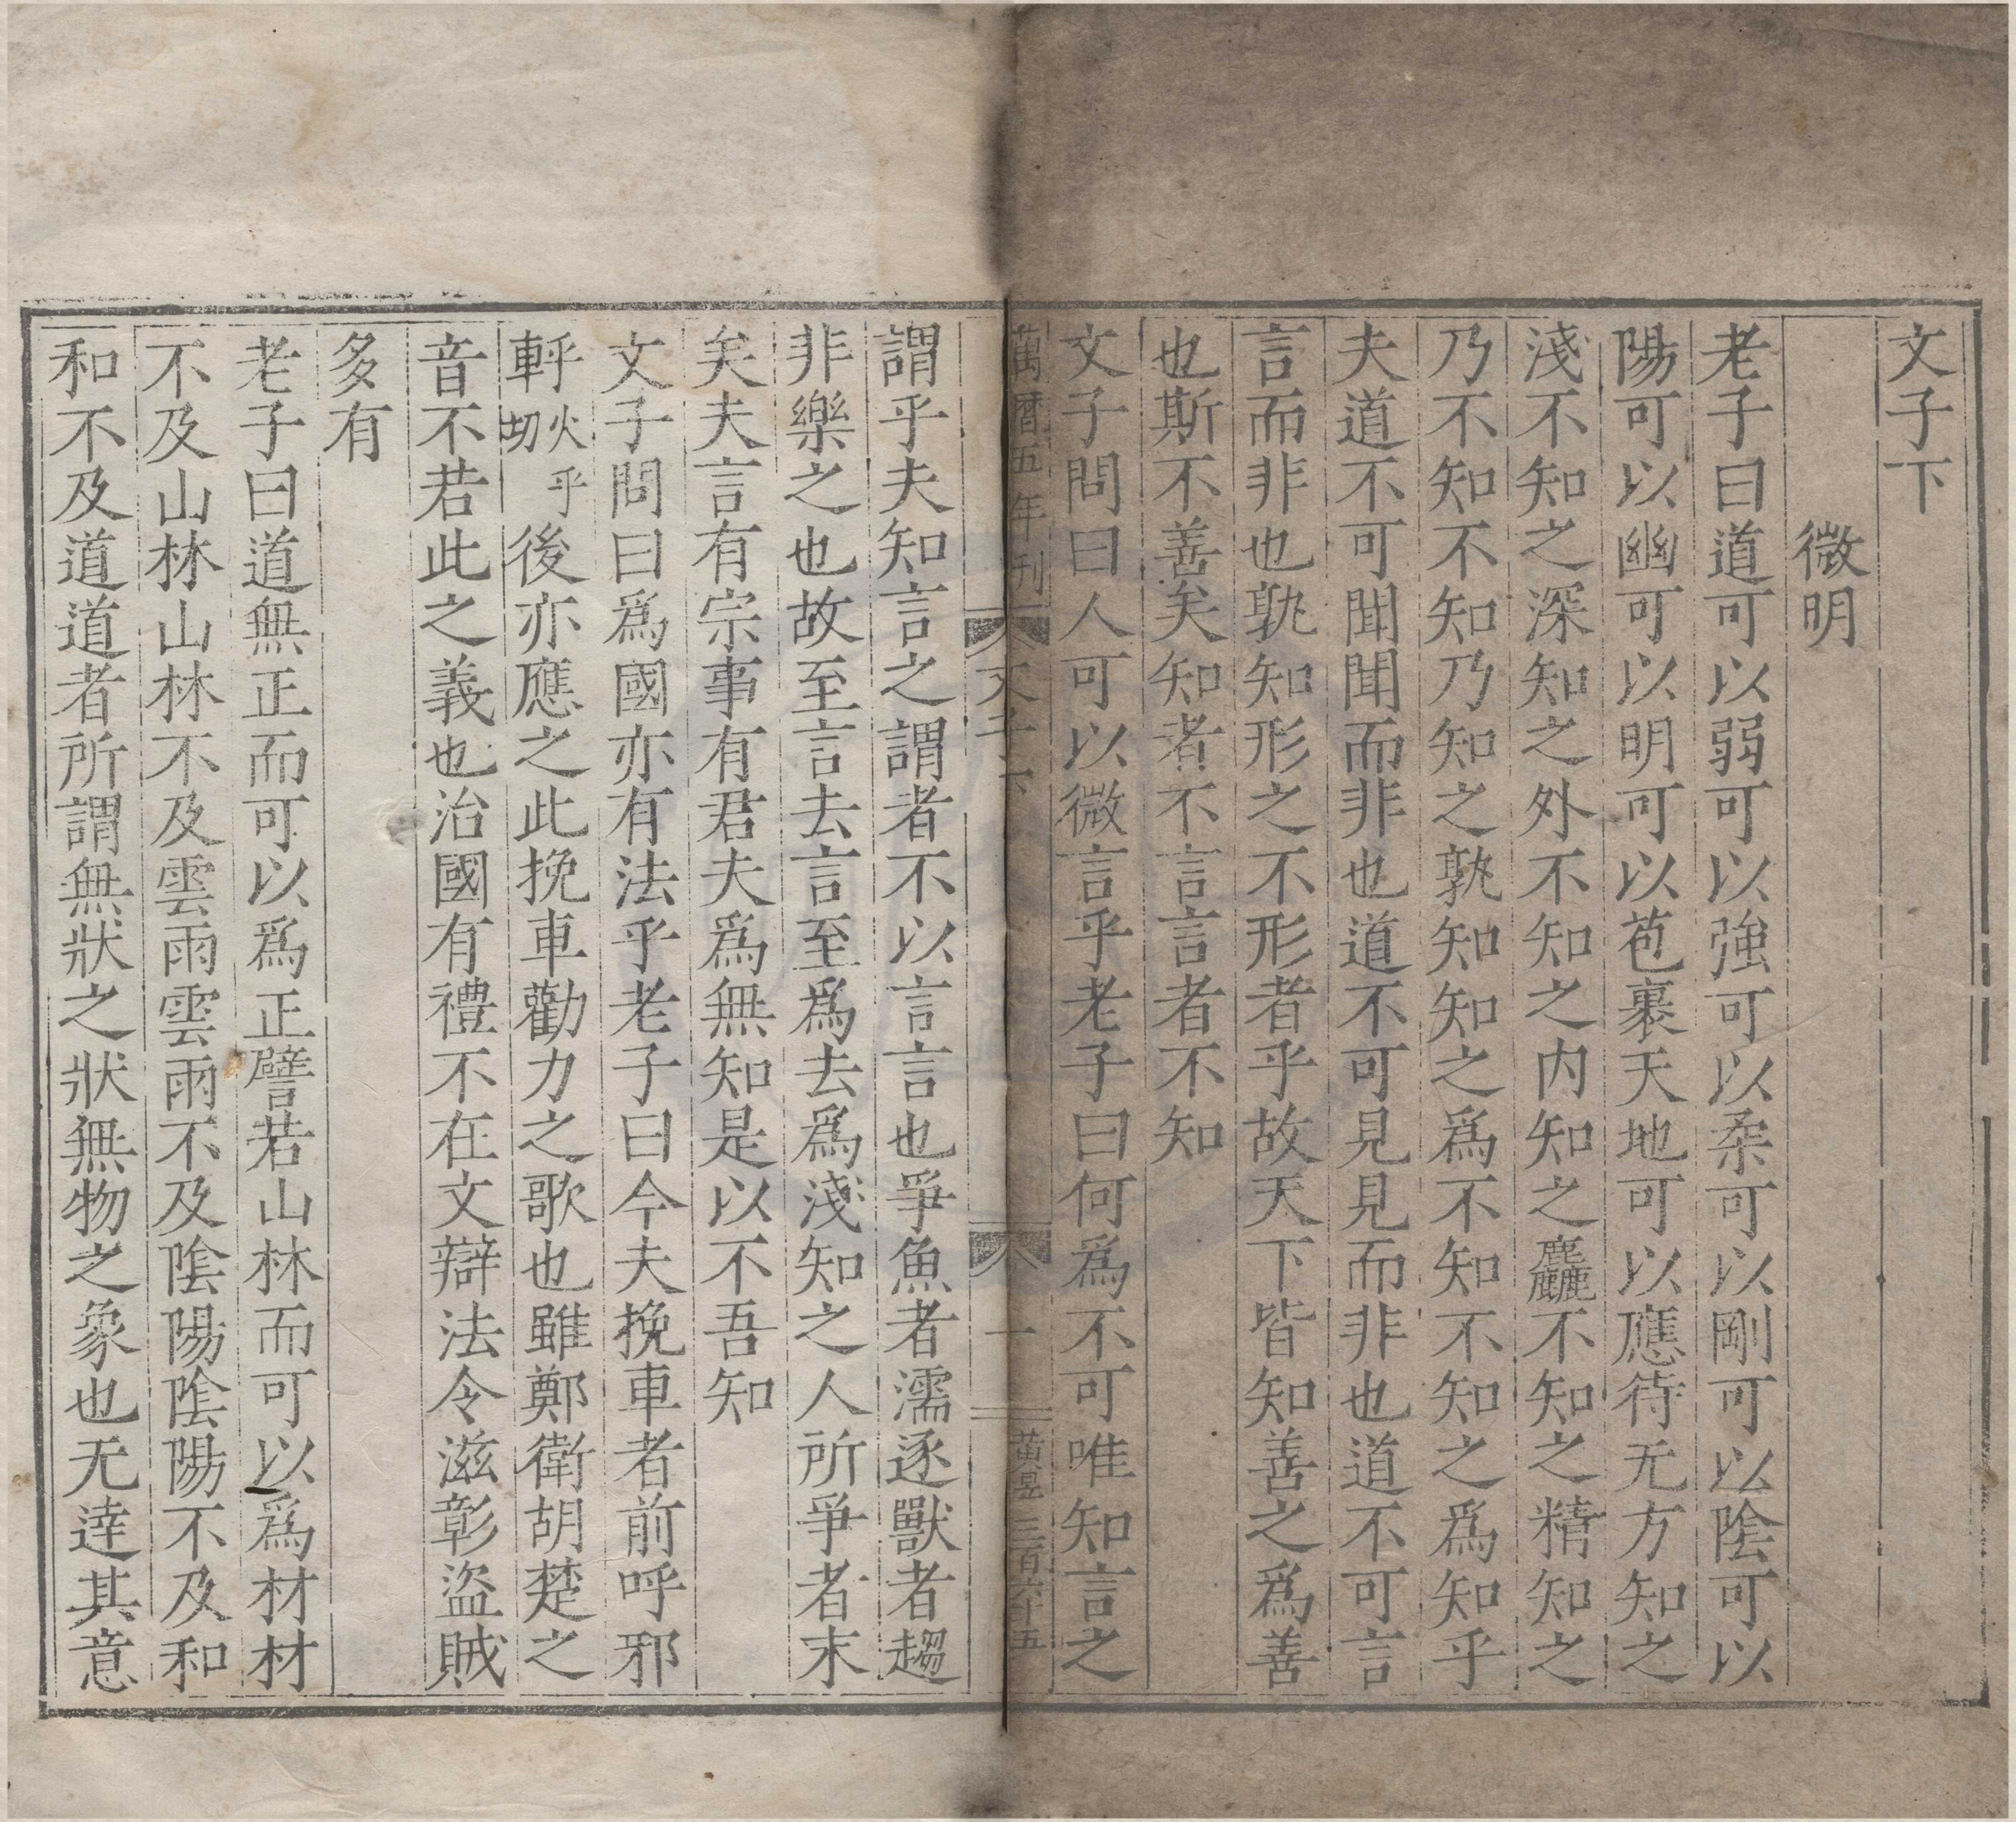 文子下
微明
老子曰道可以弱可以強可以柔可以剛可以陰可以
陽可以幽可以明可以苞裹天地可以應待无方知之
淺不知之深知之外不知之内知之麤不知之精知之
乃不知不知乃知之孰知知之爲不知不知之爲知乎
夫道不可聞聞而非也道不可見見而非也道不可言
言而非也孰知形之不形者乎故天下皆知善之爲善
也斯不善矣知者不言言者不知
文子問曰人可以微言乎老子曰何爲不可唯知言之
萬曆五年刊 文子下 一 黄昱 三百六十五
謂乎夫知言之謂者不以言言也爭魚者濡逐獸者趨
非樂之也故至言去言至爲去爲淺知之人所爭者末
矣夫言有宗事有君夫爲無知是以不吾知
文子問曰爲國亦有法乎老子曰今夫挽車者前呼邪
軤火乎切後亦應之此挽車勸力之歌也雖鄭衛胡楚之
音不若此之義也治國有禮不在文辯法令滋彰盜賊
多有
老子曰道無正而可以爲正譬若山林而可以爲材材
不及山林山林不及雲雨雲雨不及陰陽陰陽不及和
和不及道道者所謂無狀之狀無物之象也无達其意